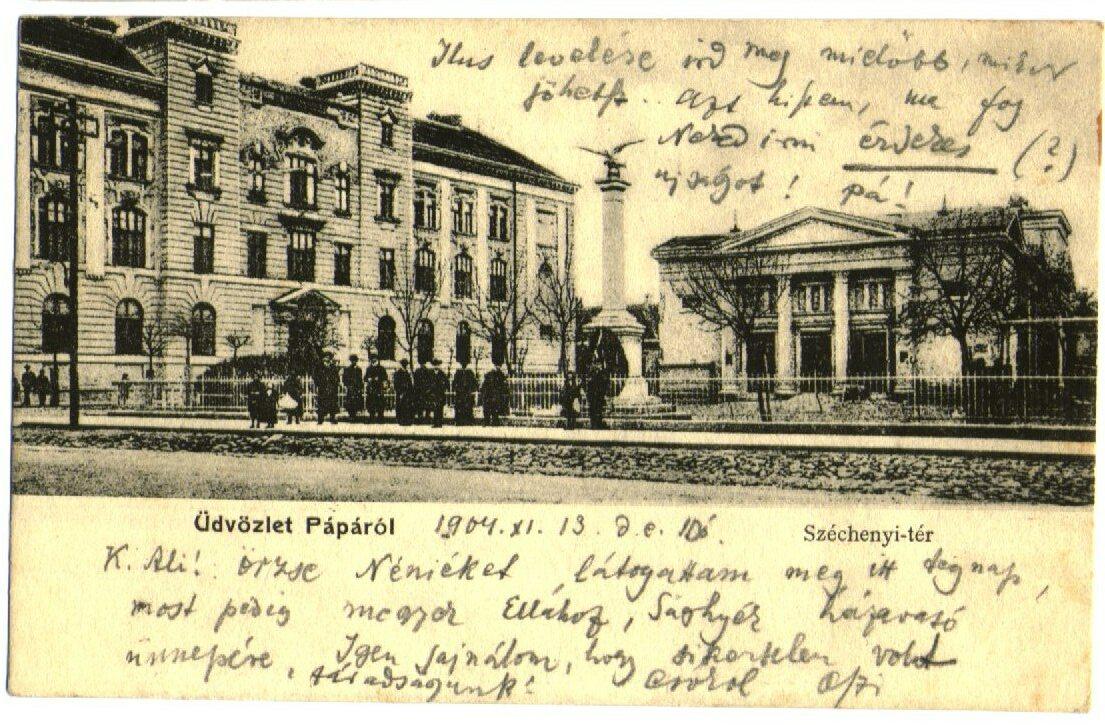 Ilus levelére írd meg mielőbb, mikor
jöhetsz.. azt hiszem, ma fog
Neked irni érdekes (?)
ujságot! pá!
Üdvözlet Pápáról 1904. XI. 13. d. e.
Széchenyi-tér
K. Ali! Örzse Néniéket látogattam meg itt tegnap,
most pedig megyek Ellához, Sághyék házavató
ünnepére. Igen sajnálom, hogy sikertelen volt
fáradságunk! Csókol